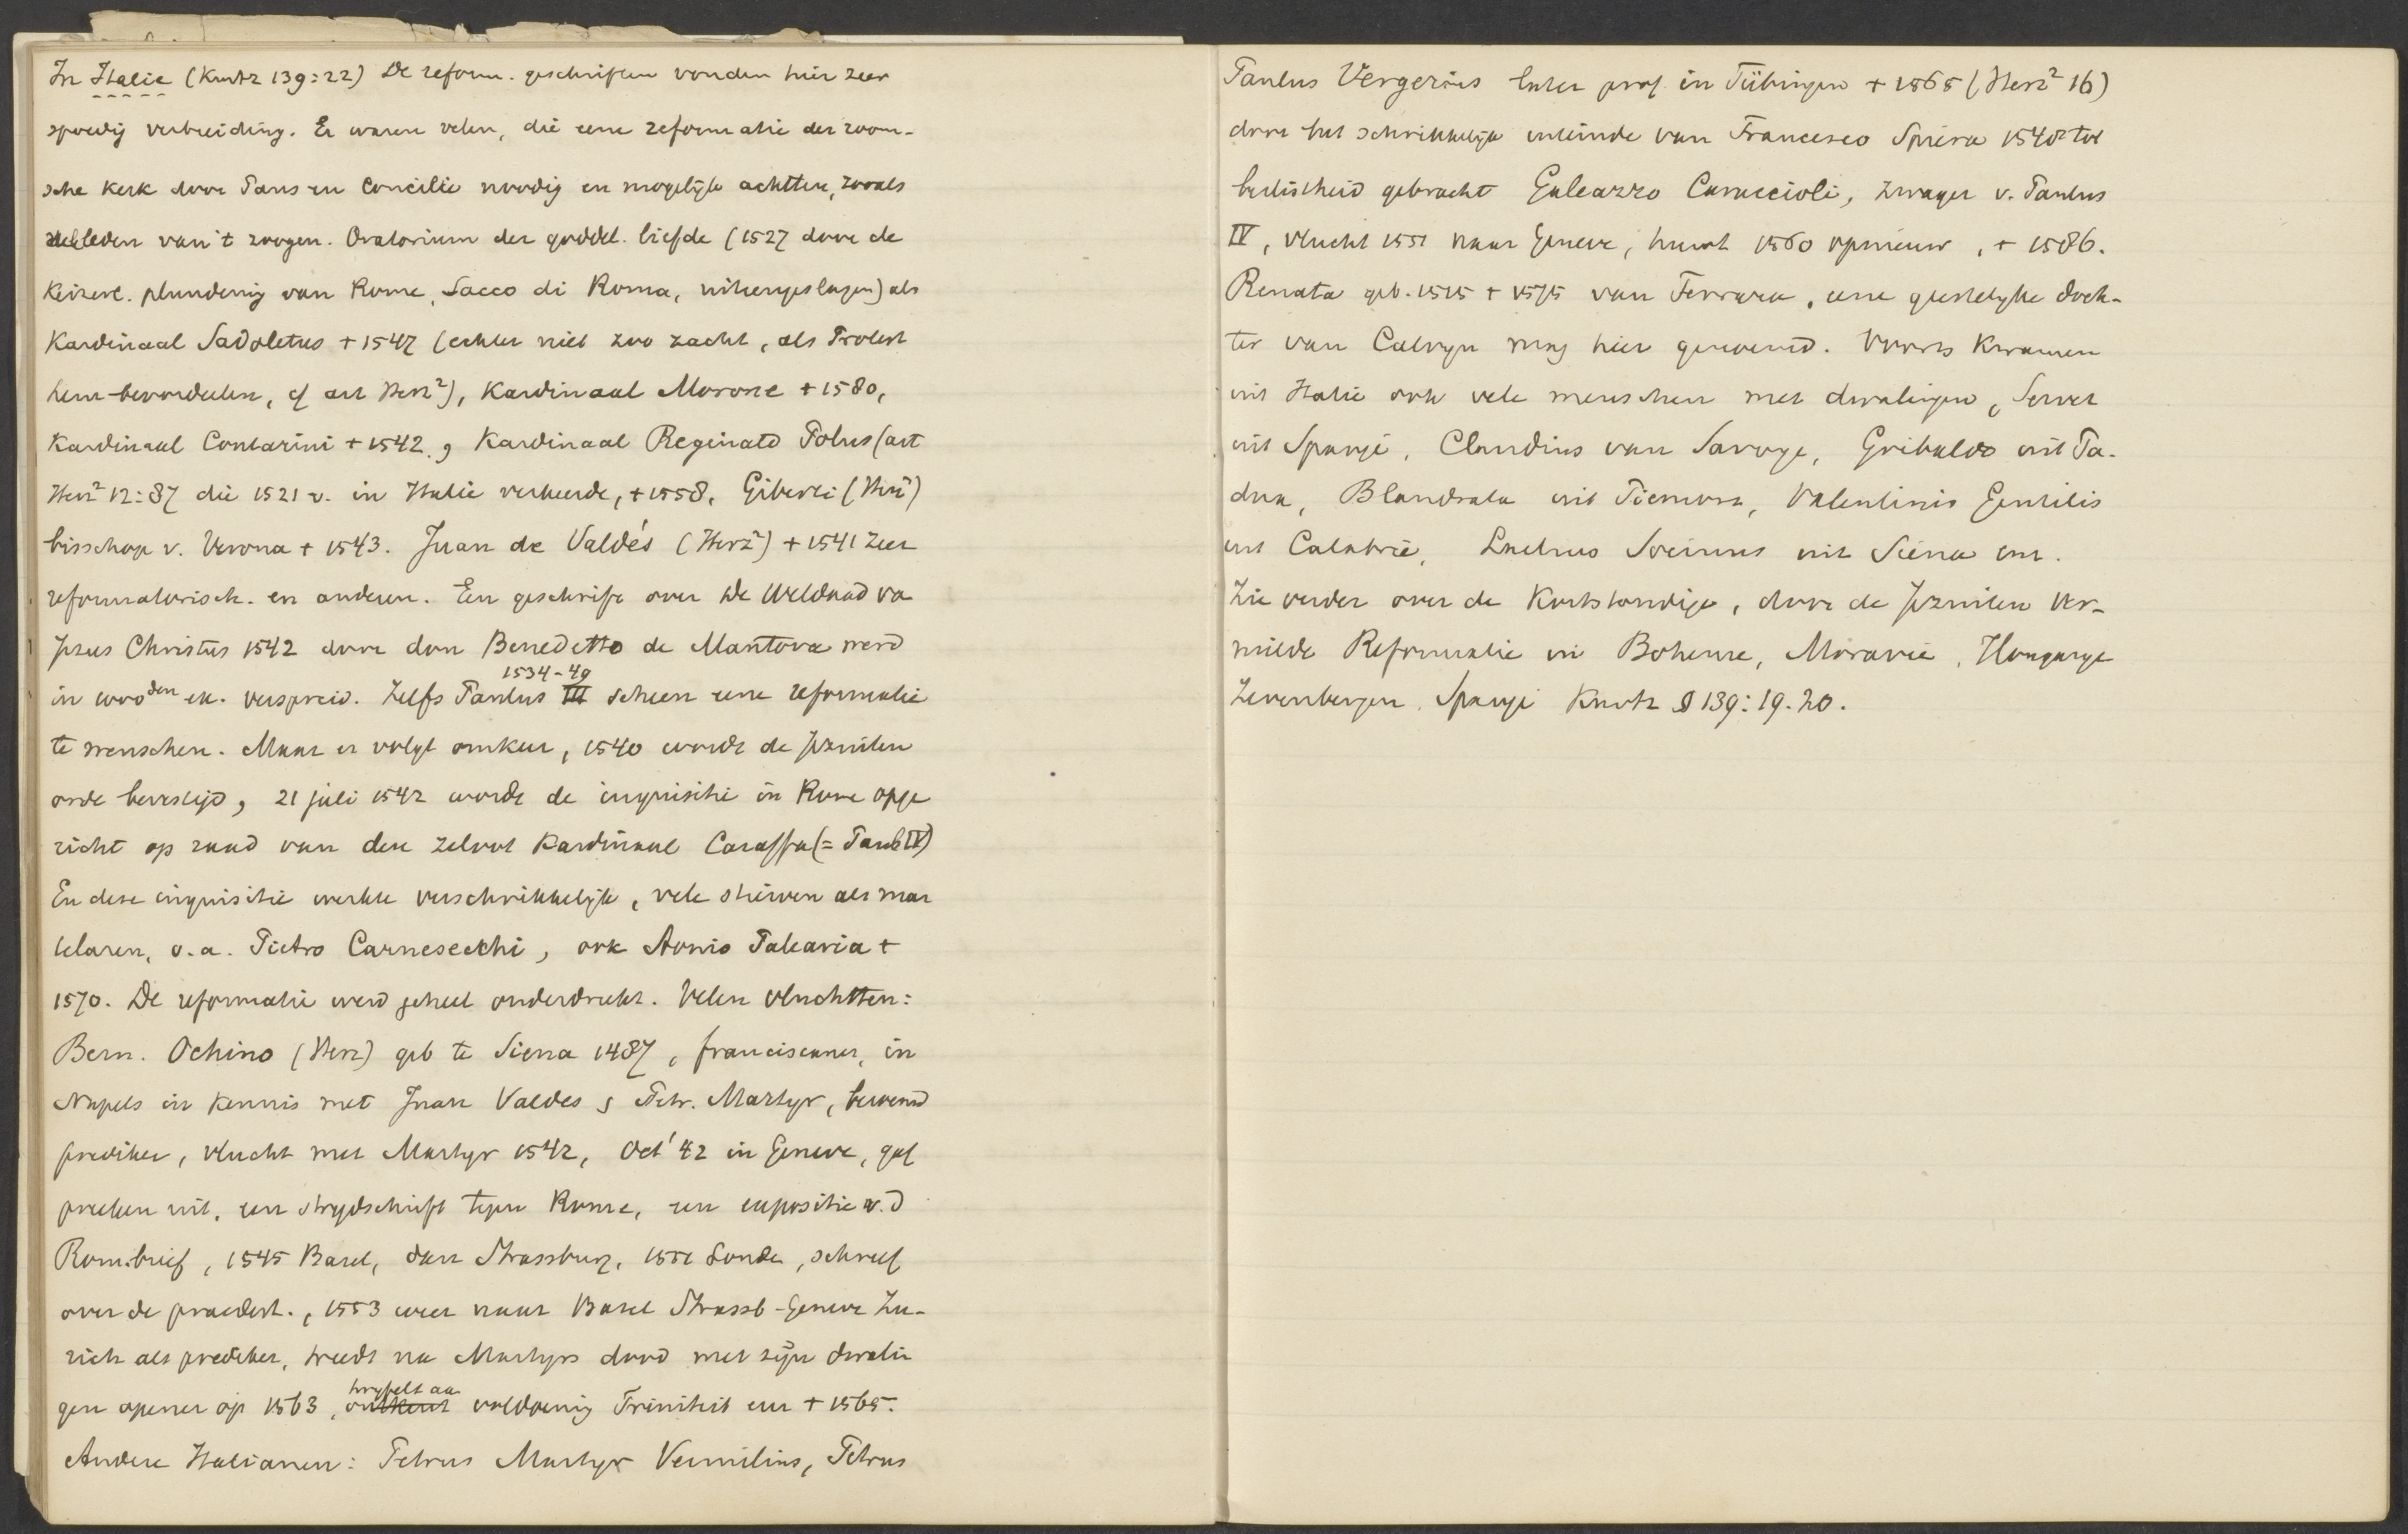 In Italie (Kurtz 139:22) De reform. geschriften vonden hier zeer
spoedig verbreiding. Er waren velen, die eene reformatie der room-
sche kerk door Paus en Concilie noodig en mogelijk achtten, zooals
de leden van 't zoogen. Oratorium der goddel. liefde (1527 door de
Keizerl. plundering van Rome, Sacco di Roma, uiteengeslagen) als
Kardinaal Sadoletus + 1547 (echter niet zoo zacht, als Protest
hem beoordeelen, cf art Herz²), Kardinaal Morone + 1580,
Kardinaal Contarini + 1542, Kardinaal Reginato Polus (art
Herz² 12:87 die 1521 v. in Italie verkeerde, + 1558, Giberti (Herz²)
bisschop v. Verona + 1543. Juan de Valdés (Herz²) + 1541 zeer
reformatorisch. en anderen. Een geschrift over de Weldaad va
Jezus Christus 1542 door don Benedetto de Mantova werd
in 40000den ex. verspreid. Zelfs Paulus III 1534-49 scheen eene reformatie
te wenschen. Maar er volgt omkeer, 1540 wordt de Jezuiten
orde bevestigd, 21 juli 1542 wordt de inquisitie in Rome opge
richt op raad van den zeloot Kardinaal Caraffa (= Paul IV)
En deze inquisitie werkte verschrikkelijk, vele stierven als mar
telaren, o.a. Pietro Carnesecchi, ook Aonio Paleario +
1570. De reformatie werd geheel onderdrukt. Velen vluchtten:
Bern. Ochino (Herz) geb te Siena 1487, franciscaner, in
Napels in kennis met Juan Valdes, Petr. Martyr, beroemd
prediker, vlucht met Martyr 1542, Oct '42 in Geneve, gaf
preeken uit, een strydschrift tegen Rome, een expositie v.d
Rom.brief, 1545 Basel, dan Strassburg, 1551 Londen, schreef
over de praedest., 1553 weer naar Basel Strassb-Geneve Zu-
rich als prediker, treedt na Martyrs dood met zijn dwalin
gen opener op 1563, ontkent twyfelt aan voldoening Triniteit enz + 1565.
Andere Italianen: Petrus Martyr Vermilius, Petrus
Paulus Vergerius later prof. in Tübingen + 1565 (Herz² 16)
door het schrikkelijk uiteinde van Francesco Spiera 1548 tot
beslistheid gebracht Galeazzo Caraccioli, zwager v. Paulus
IV, vlucht 1551 naar Geneve, huwt 1560 opnieuw, + 1586.
Renata geb. 1515 + 1575 van Ferrara, eene geestelyke doch-
ter van Calvyn mag hier genoemd. Voorts kwamen
uit Italie ook vele menschen met dwalingen, Servet
uit Spanje, Claudius van Savoye, Gribaldo uit Pa-
dua, Blandrata uit Piemont, Valentinis Gentilis
uit Calabrië, Laelius Socinus uit Siena enz.
Zie verder over de Kortstondige, door de Jezuiten ver-
nielde Reformatie in Boheme, Moravië, Hongarye
Zevenbergen, Spanje Kurtz § 139:19.20.